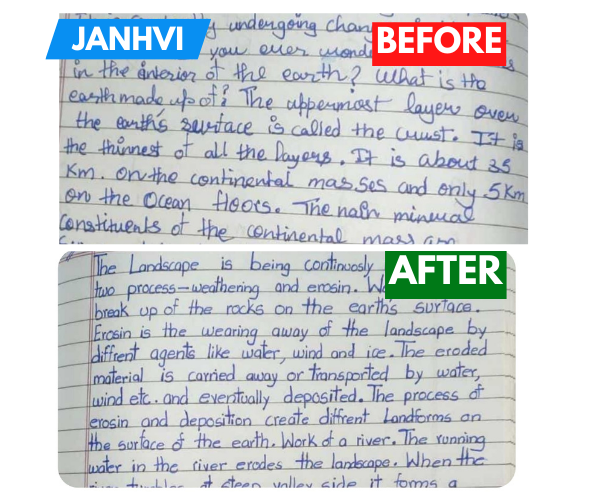 JANHVI
BEFORE
undergoing chan
you ever wond
in the interior of the earth? What is the
earth made up of? The uppermost layer over
the earth's surface is called the crust. It is
the thinnest of all the layers. It is about 35
Km. on the continental masses and only 5 Km
on the Ocean floors. The main mineral
constituents of the continental mass are
AFTER
The Landscape is being continuosly
two process-weathering and erosin.
break up of the rocks on the earth's surface.
Erosin is the wearing away of the landscape by
diffrent agents like water, wind and ice. The eroded
material is carried away or transported by water,
wind etc. and eventually deposited. The process of
erosin and deposition create diffrent Landforms on
the surface of the earth. Work of a river. The running
water in the river erodes the landscape. When the
steep valley side it forms a